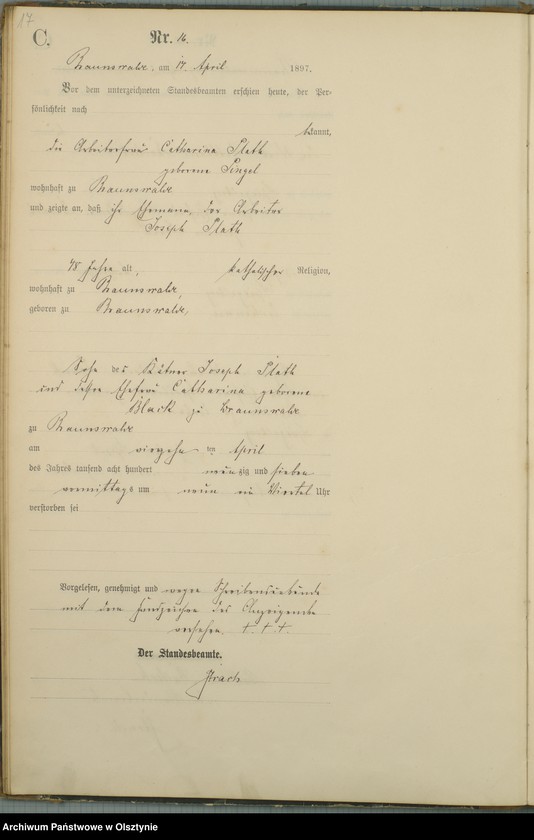 17
C.
Nr. 16.
Braunswalde, am 17 April 1897.
Vor dem unterzeichneten Standesbeamten erschien heute, der Per-
sönlichkeit nach
bekannt,
die Arbeiterfrau Catharina Plath
geborene Pingel
wohnhaft zu Braunswalde
und zeigte an, daß ihr Ehemann, der Arbeiter
Joseph Plath
48 Jahre alt, katholischer Religion,
wohnhaft zu Braunswalde,
geboren zu Braunswalde,
Sohn des Kätner Joseph Plath
und dessen Ehefrau Catharina geborene
Black zu Braunswalde
zu Braunswalde
am vierzehn ten April
des Jahres tausend acht hundert neunzig und sieben
vormittags um neun ein Viertel Uhr
verstorben sei
Vorgelesen, genehmigt und wegen Schreibensunkunde
mit dem Handzeichen des Anzeigenden
versehen. † † †.
Der Standesbeamte.
Archiwum Państwowe w Olsztynie